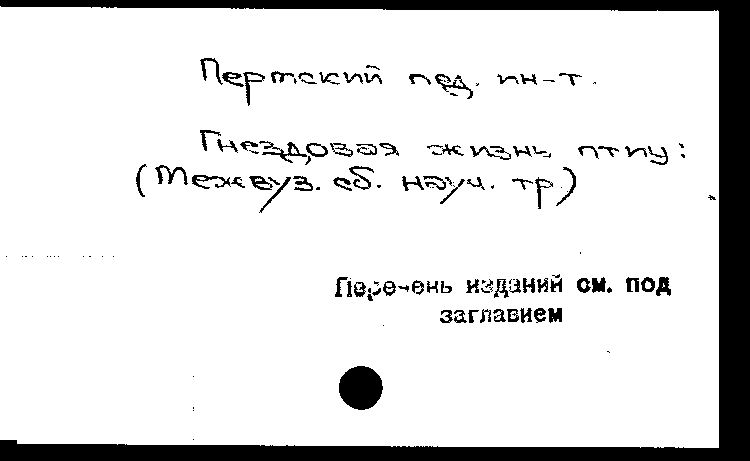 Пермский пед. ин-т.
Гнездовая жизнь птиц:
(Межвуз. сб. науч. тр.)
Перечень изданий см. под
заглавием